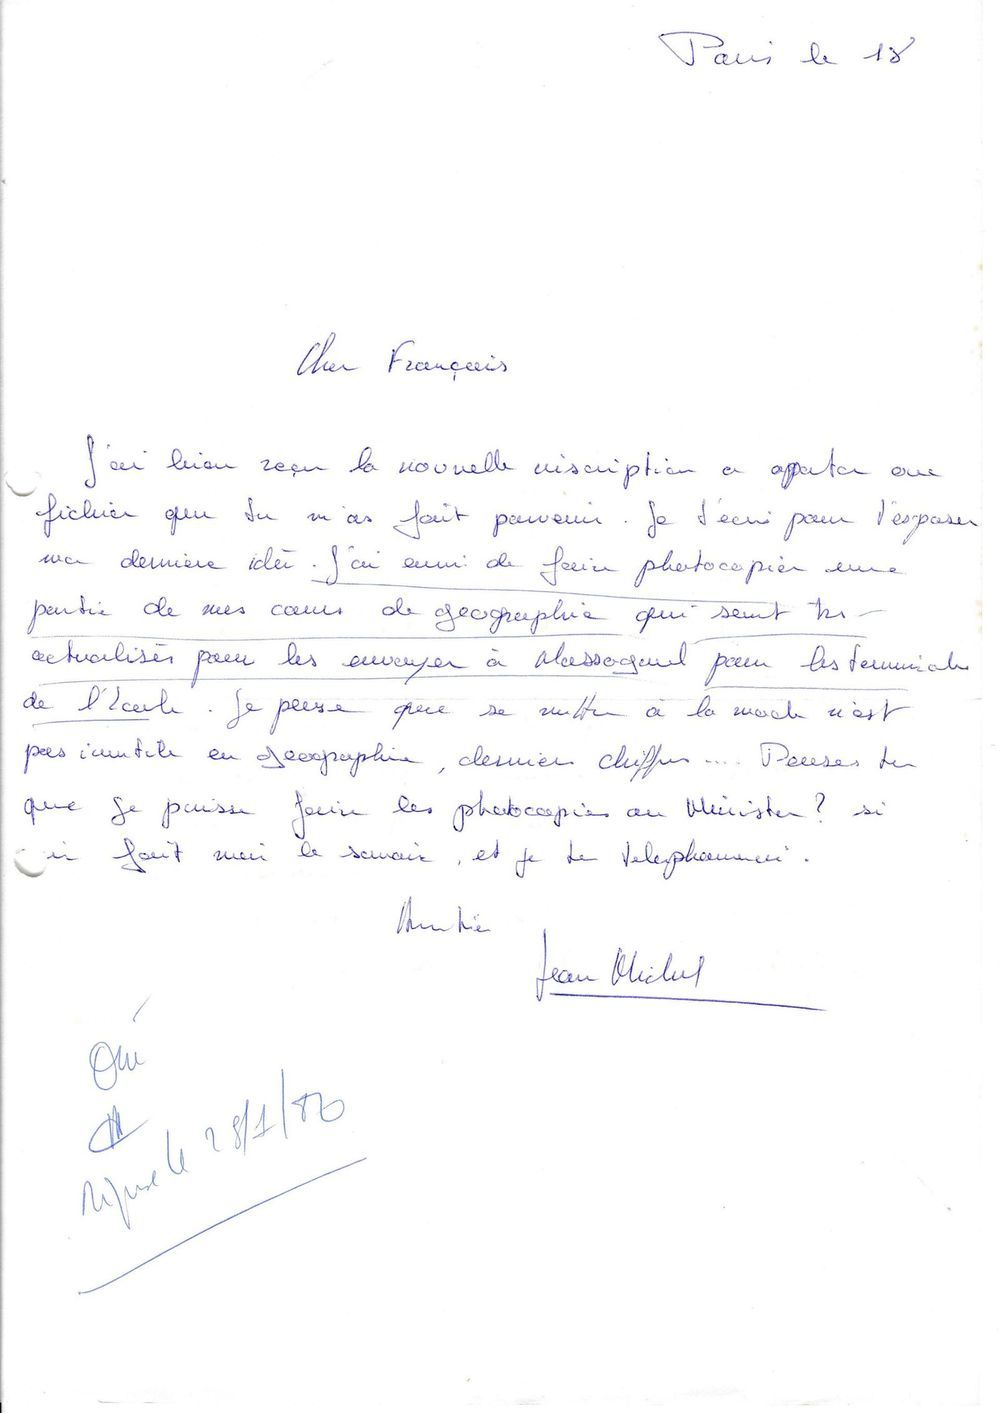 Paris le 18
Cher François
J'ai bien reçu la nouvelle inscription a apporter au
fichier que tu m'as fait parvenir. Je t'écris pour t'exposer
ma dernière idée. J'ai envie de faire photocopier une
partie de mes cours de géographie qui sont très
actualisés pour les envoyer à Massogand pour les terminales
de l'Ecole. Je pense que se mettre à la mode n'est
pas inutile en géographie, derniers chiffres.... Penses tu
que je puisse faire les photocopies au Ministère? si
oui fait moi le savoir, et je te téléphonerai.
Amitiés
Jean Michel
Oui
le 28/1/80